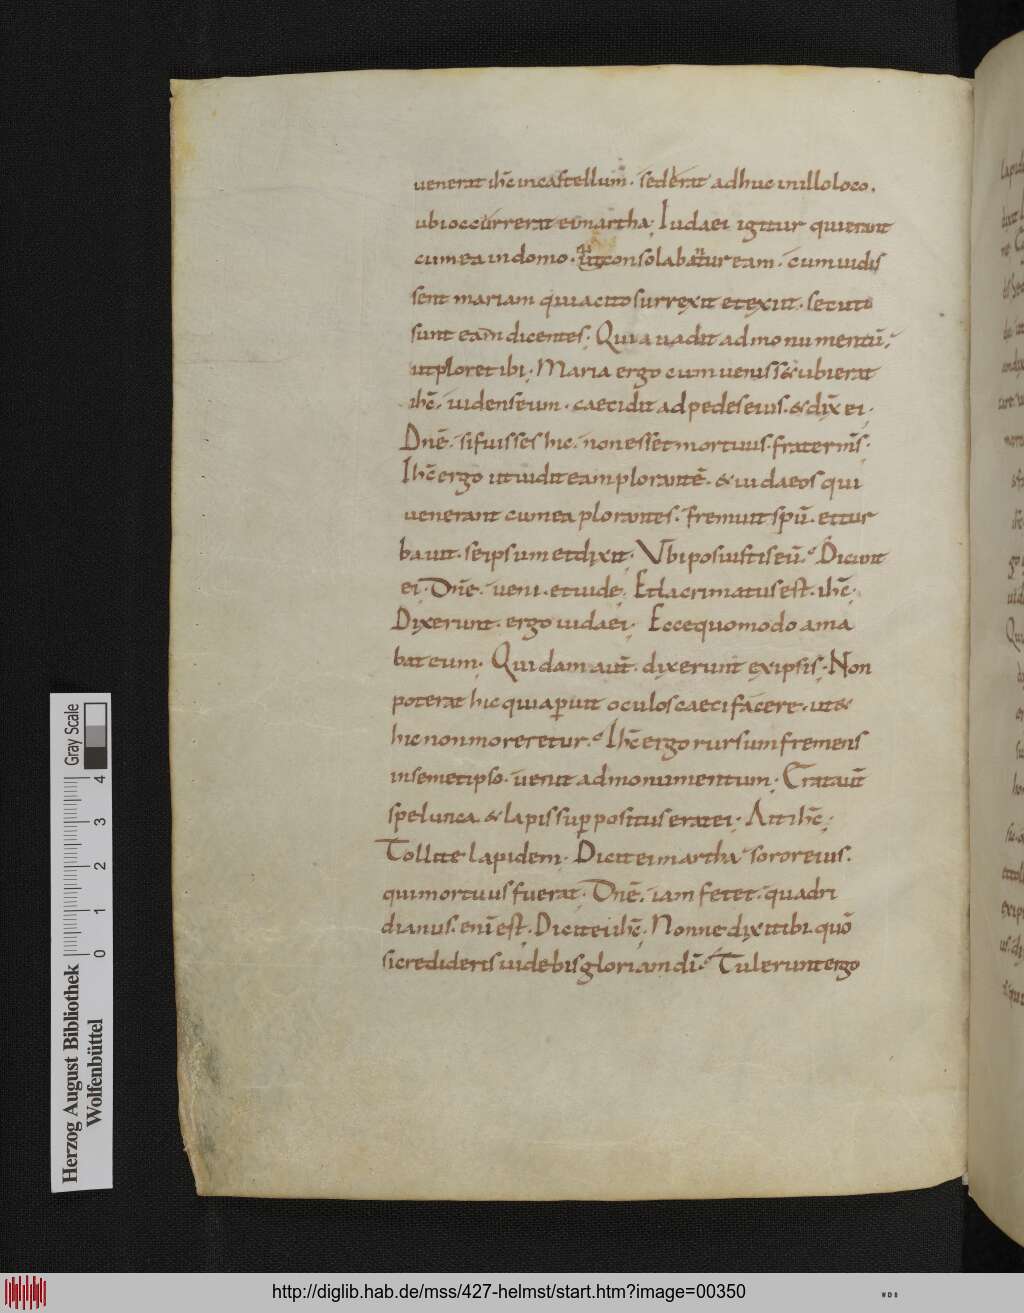 venerat ihc̄ incastellum. sed erat adhuc inilloloco.
ubi occurrerat eimartha; Iudaei igitur quierant
cumea indomo. &consolabantur eam. cumvidis
sent mariam quia cito surrexit etexiit. secuti
sunt eam dicentes; Quia vadit admonumentū.
utploret ibi; Maria ergo cum veniss& ubi erat
ihc̄. videns eum. caecidit adpedes eius. & dix̄ ei;
Dn̄e. si fuisses hic. non esset mortuus. frater ms̄;
Ihc̄ ergo utvidit eam plorantē. & iudaeos qui
venerant cumea plorantes. fremuit spū. ettur
bavit. seipsum etdixit; Vbi posuistis eū. Dicunt
ei; Dn̄e. veni. etvide; Etlacrimatus est. ihc̄;
Dixerunt. ergo iudaei; Ecce quomodo ama
bat eum; Quidam aut̄. dixerunt exipsis; Non
poterat hic quiaꝑuit oculos caeci facere. ut&
hic non moreretur. Ihc̄ ergo rursum fremens
insemetipso. venit admonumentum; Erat aut̄
spelunca & lapis suꝑpositus erat ei; Ait ihc̄;
Tollite lapidem; Dicit ei martha soror eius.
qui mortuus fuerat; Dn̄e. iam fetet. quadri
dianus. enī est; Dicit ei ihc̄; Nonne dixi tibi quō
si credideris videbis gloriam dī. Tulerunt ergo
Herzog August Bibliothek
Wolfenbüttel
0 1 2 3 4
Gray Scale
http://diglib.hab.de/mss/427-helmst/start.htm?image=00350